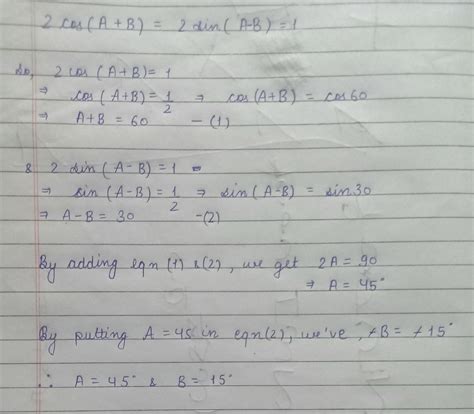 2 cos(A+B) = 2 sin(A-B) = 1
So, 2 cos(A+B) = 1
⇒ cos(A+B) = 1/2 ⇒ cos(A+B) = cos60
⇒ A+B = 60 -(1)
& 2 sin(A-B) = 1
⇒ sin(A-B) = 1/2 ⇒ sin(A-B) = sin30
⇒ A-B = 30 -(2)
By adding eqn (1) & (2), we get 2A = 90
⇒ A = 45°
By putting A = 45 in eqn(2), we've, +B = +15°
∴ A = 45° & B = 15°